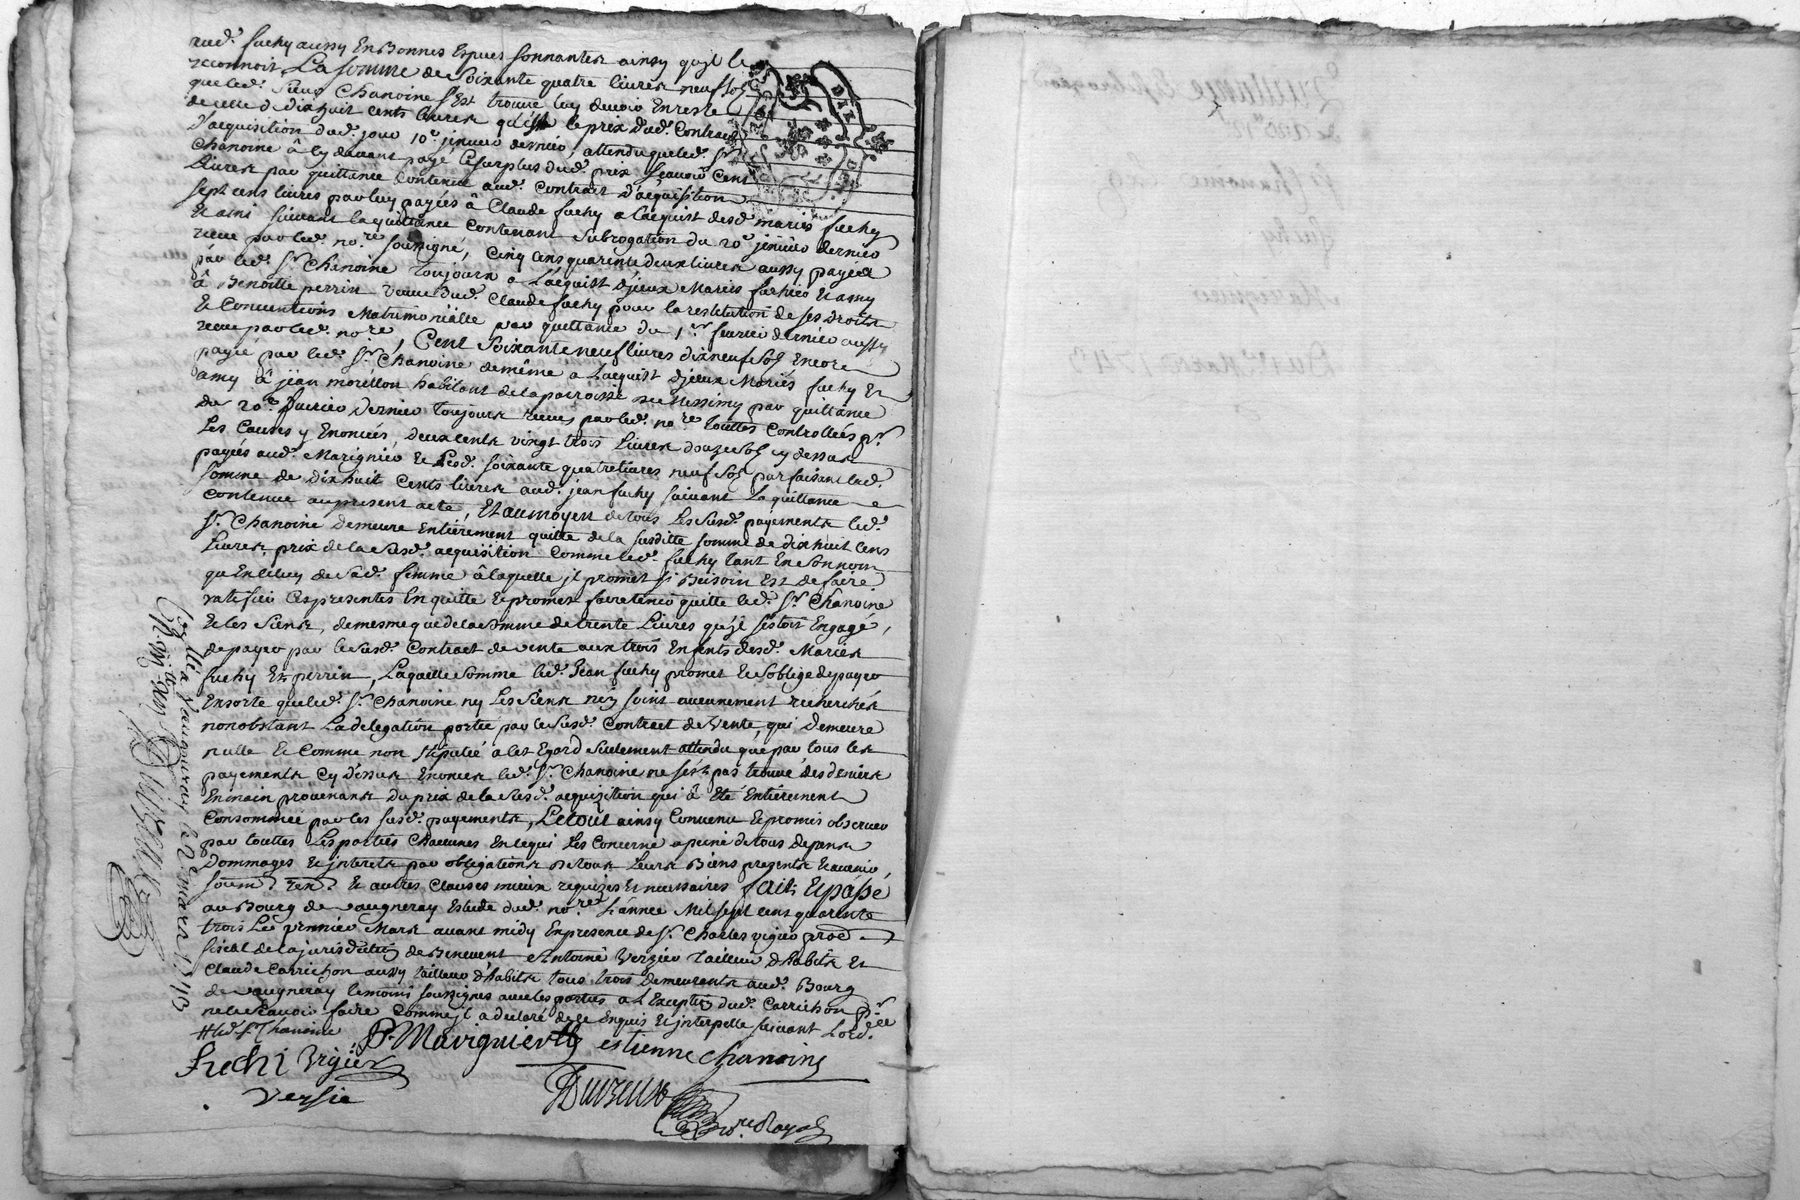 aud. fuchy aussy En Bonnes Espèces sonnantes ainsy qu'il le
reconnoit, La somme de Soixante quatre livres neuf sols
que led. sieur Chanoine s'Est trouvé luy devoir En reste
de celle de dixhuit cents livres qu'est le prix dud. Contract
d'acquisition dud. jour 10e janvier dernier, attendu que led. Sr
Chanoine à cy devant payé le surplus dud. prix, sçavoir Cent
livres par quittance Contenue aud. Contrat D'acquisition
sept cens livres par luy payées à Claude fuchy a l'acquist desd. mariés fuchy
Et ami suivant la quittance Contenant Subrogation du 20e janvier dernier
receue par led. nore soussigné, Cinq cens quarente deux livres aussy payées
par led. Sr Chanoine toujours a L'acquist d'jceux Mariés fuchy Et amy
à Benoitte perrin veuve dud. Claude fuchy pour la restitution de ses droits
Et Conventions Matrimonialle par quittance du 1er fevrier dernier aussy
receue par led. nore, Cent Soixante neuf livres dix neuf sols Encore
payé par led. Sr Chanoine de même a L'acquist d'jceux Mariés fuchy Et
amy à jean morellon habitant de la parroisse de Messimy par quittance
du 20e fevrier dernier toujours receue par led. nore touttes Controllées pr
Les Causes y Enoncées, deux cents vingt trois Livres douze sols cy dessus
payées aud. Marignier Et Lesd. soixante quatre livres neuf sols parfaisant lad.
somme de dix huit Cents livres aud. jean fuchy suivant la quittance
contenue au present acte, Et au moyen de tous Les susd. payements led.
Sr Chanoine Demeure Entièrement quitte de la susditte somme de dixhuit cens
Livres, prix de la susd. acquisition Comme led. fuchy tant En son nom
qu'En celuy de sad. femme à laquelle jl promet si Besoin Est de faire
ratifier Ces presentes En quitte Et promet faire tenir quitte led. Sr Chanoine
Et les Siens, de mesme que de la somme de trente Livres qu'jl s'estoit Engagé,
de payer par le susd. Contract de vente aux trois Enfents desd. Mariés
fuchy Et perrin, Laquelle somme led. Jean fuchy promet Et s'oblige de payer
En sorte que led. Sr Chanoine ny Les Siens n'En soint aucunement recherchés
nonobstant La delegation portée par le susd. Contract de Vente, qui Demeure
nulle Et Comme non stipulé a cet Egard seulement attendu que par tous les
payements Cy dessus Enoncés led. Sr Chanoine ne s'est pas trouvé des deniers
En main provenans du prix de la susd. acquisition qui à Eté Entièrement
Consommée par les susd. payements, Le tout ainsy Convenu Et promis observer
par touttes Les parties Chacunes En ce qui Les Concerne a peine de tous depens
Dommages Et jnterets par obligations de tous Leurs Biens presents Et avenir,
soum. ren. Et autres Clauses mieux requizes Et necessaires fait Et passé
au Bourg de vaugneray Estude dud. nore L'année Mil sept cens quarente
trois Le premier Mars avant midy En presence de Sr Charles vigier proc.
fiscal de la jurisdiction de Benevent Antoine Verzier Tailleur d'habits Et
Claude Carrichon aussy tailleur d'habits tous trois demeurants aud. Bourg
de vaugneray temoins soussignés avec les parties a L'Exception dud. Carrichon pr
ne le sçavoir faire Comme jl a declaré de ce Enquis Et jnterpellé suivant L'ord.
led. Sr Chanoine
P. Marignier estienne chanoine
fuchi Vigier
versie
Duvzeux
nore Royal
Collé a Vaugneray le 2e mars 1743